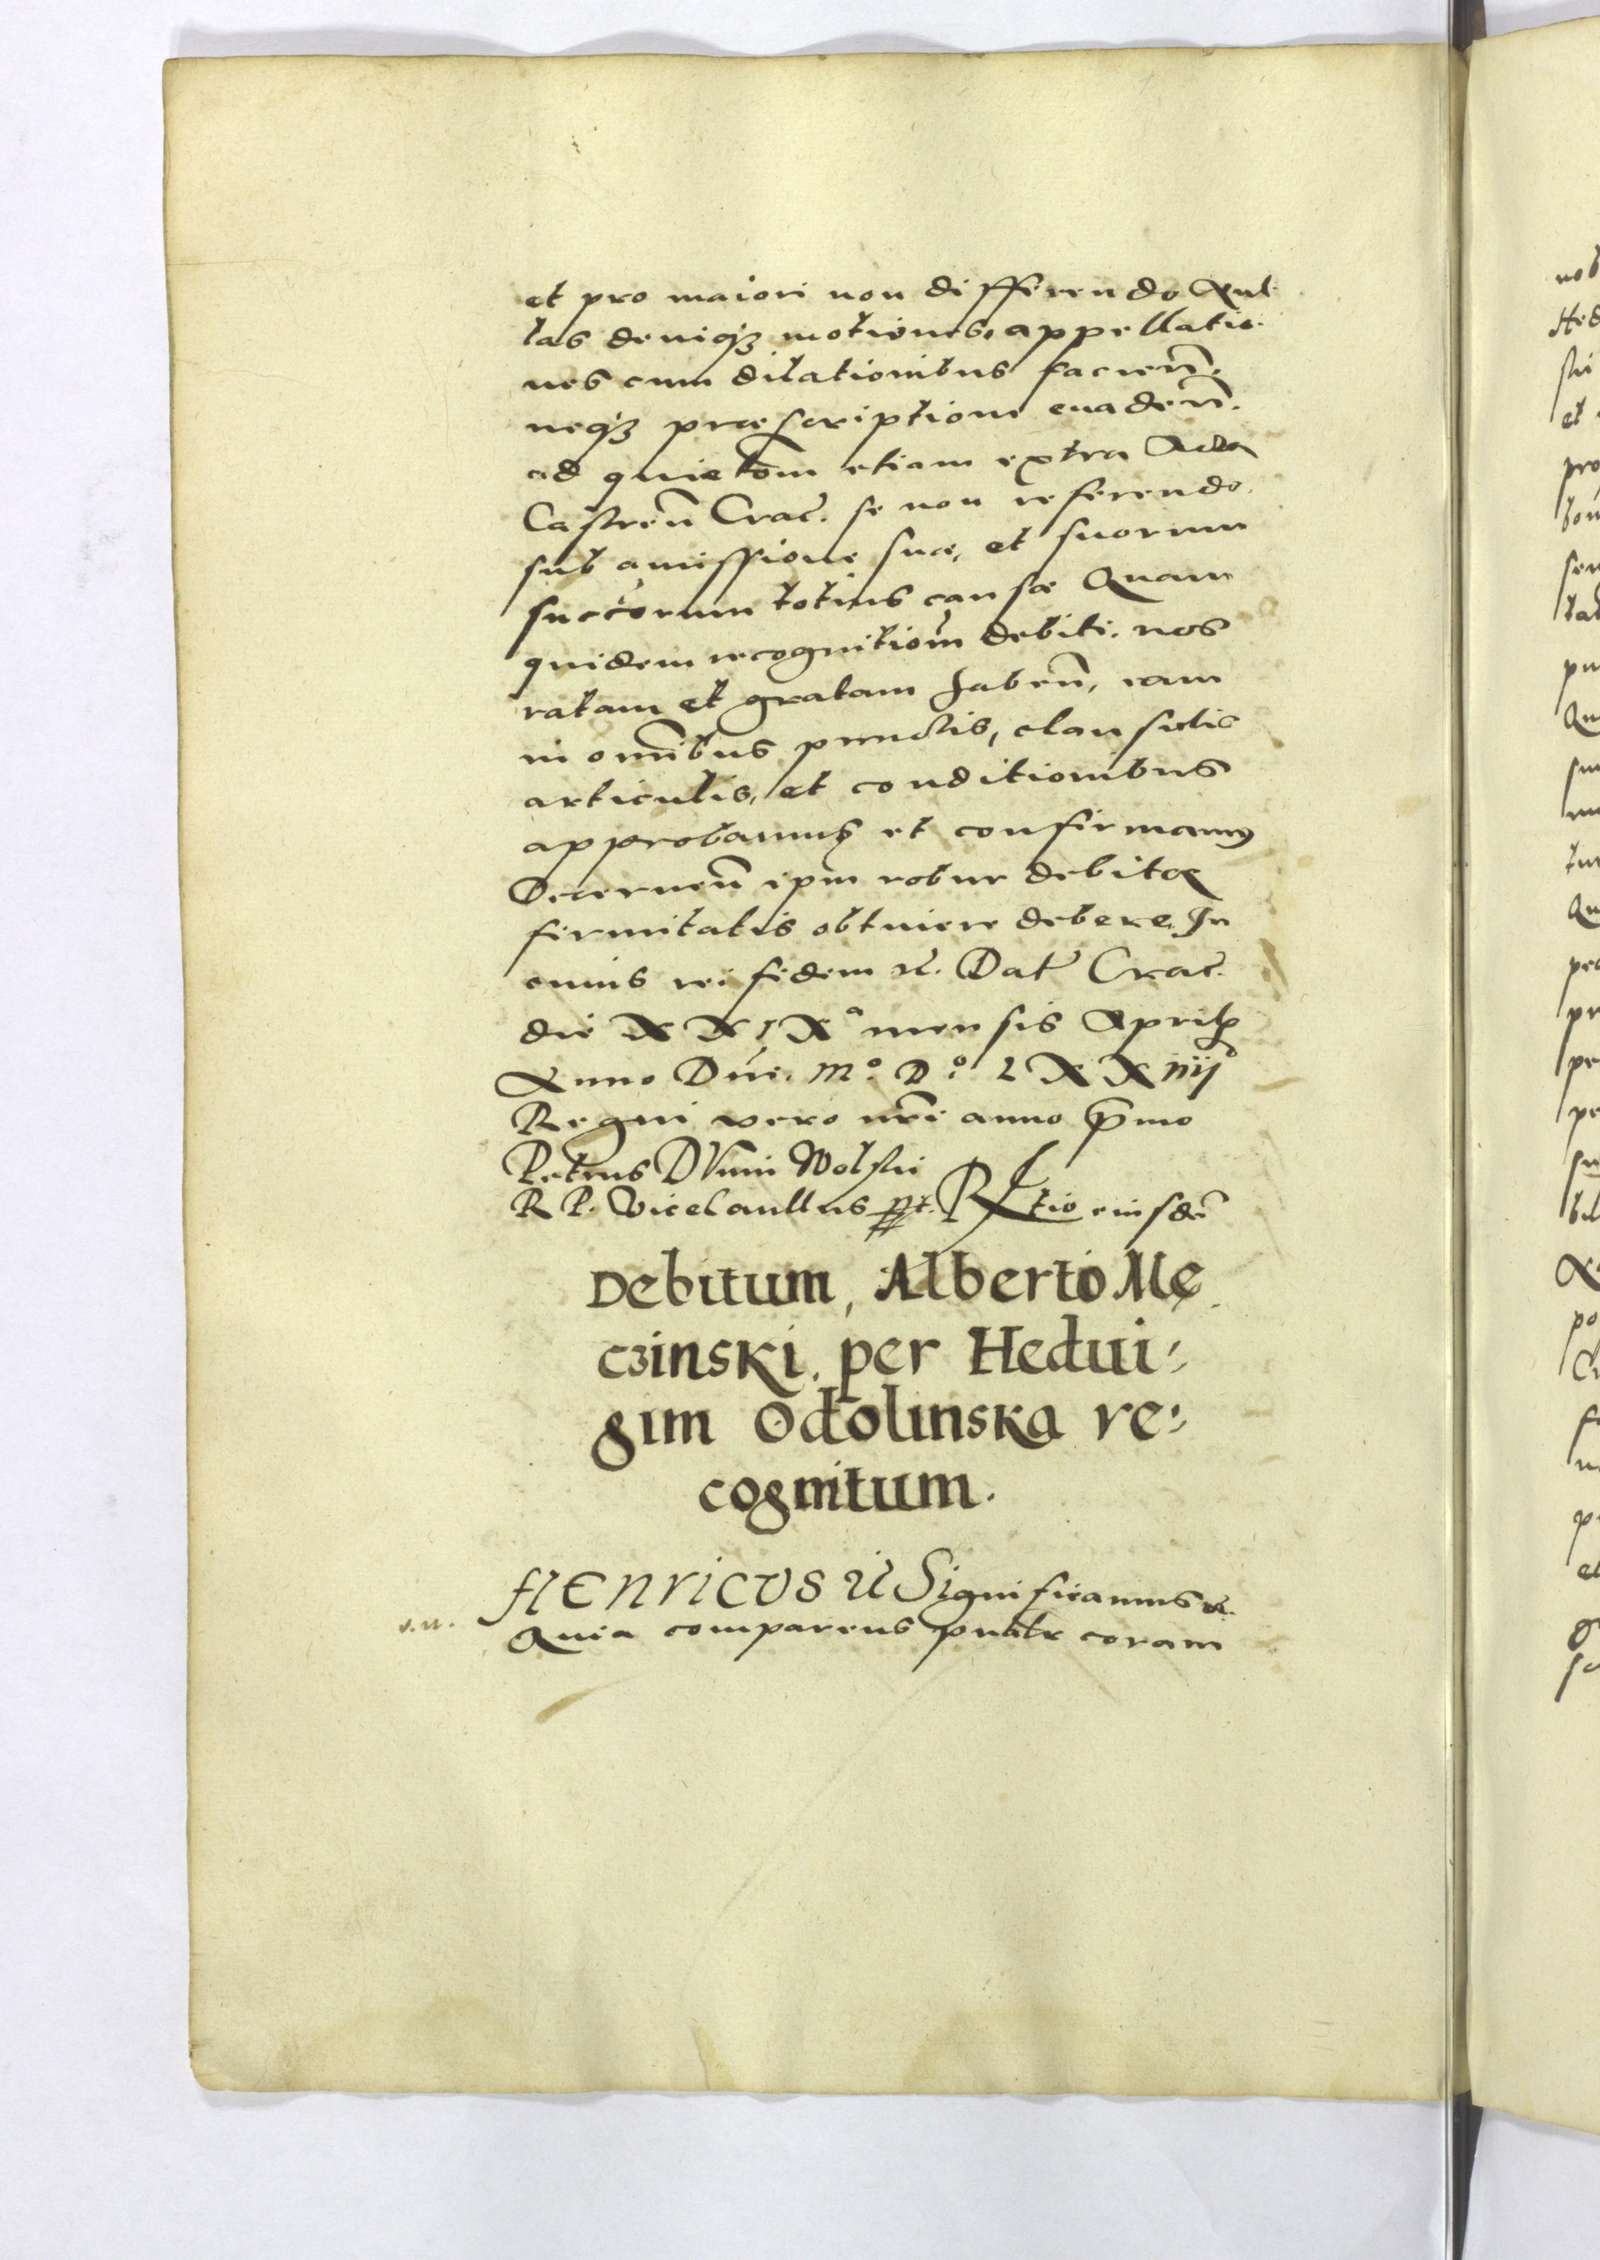 et pro maiori non differendo Nul
las deniqȝ motiones, appellatio
nes cum dilationibus facien̄.
neqȝ præscriptione euaden̄.
ad quietem etiam extra Acta
Castren̄ Crac̄. se non referendo.
sub amissione suæ, et suorum
succ̄orum totius causæ Quam
quidem recognitiom̄ debiti. nos
ratam et gratam haben̄, eam
in om̄ibus punctis, clausulis
articulis, et conditionibus
approbamus et confirmamus
Decernen̄ ipm robur debitæ
firmitatis obtinere debere. In
cuius rei fidem etc. Dat̄ Crac̄.
die XXIXa mensis Aprilis
Anno Dn̄i. Mo. Do. LXXiiijo
Regni vero nr̄i anno p̄mo
Petrus Dunin Wolski
R P. Vicecancellus sst. Rltio eiusdē
Debitum, Alberto Mę
czinski, per Hedui-
gim Odolinska re-
cognitum.
HENRICUS etc Significamus etc.
Quia comparens pnalr coram